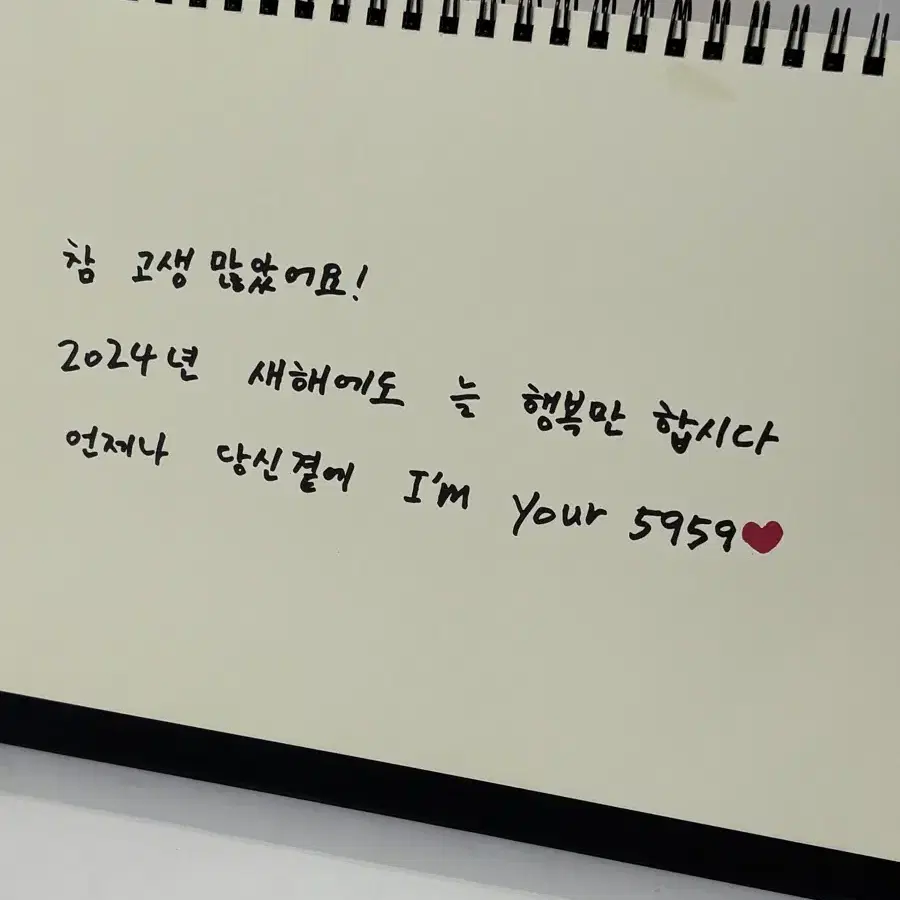 참 고생 많았어요!
2024년 새해에도 늘 행복만 합시다
언제나 당신곁에 I'm your 5959❤